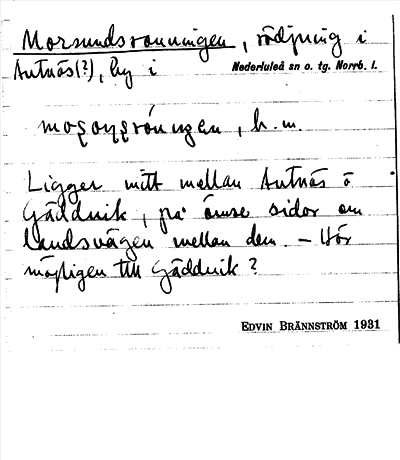 Morsundsronningen, rödjning i
Antnäs(?), by i Nederluleå sn o. tg. Norrb. l.
Ligger mitt mellan Antnäs o
Gäddvik, på ömse sidor om
landsvägen mellan dem. – Hör
möjligen till Gäddvik?
EDVIN BRÄNNSTRÖM 1931